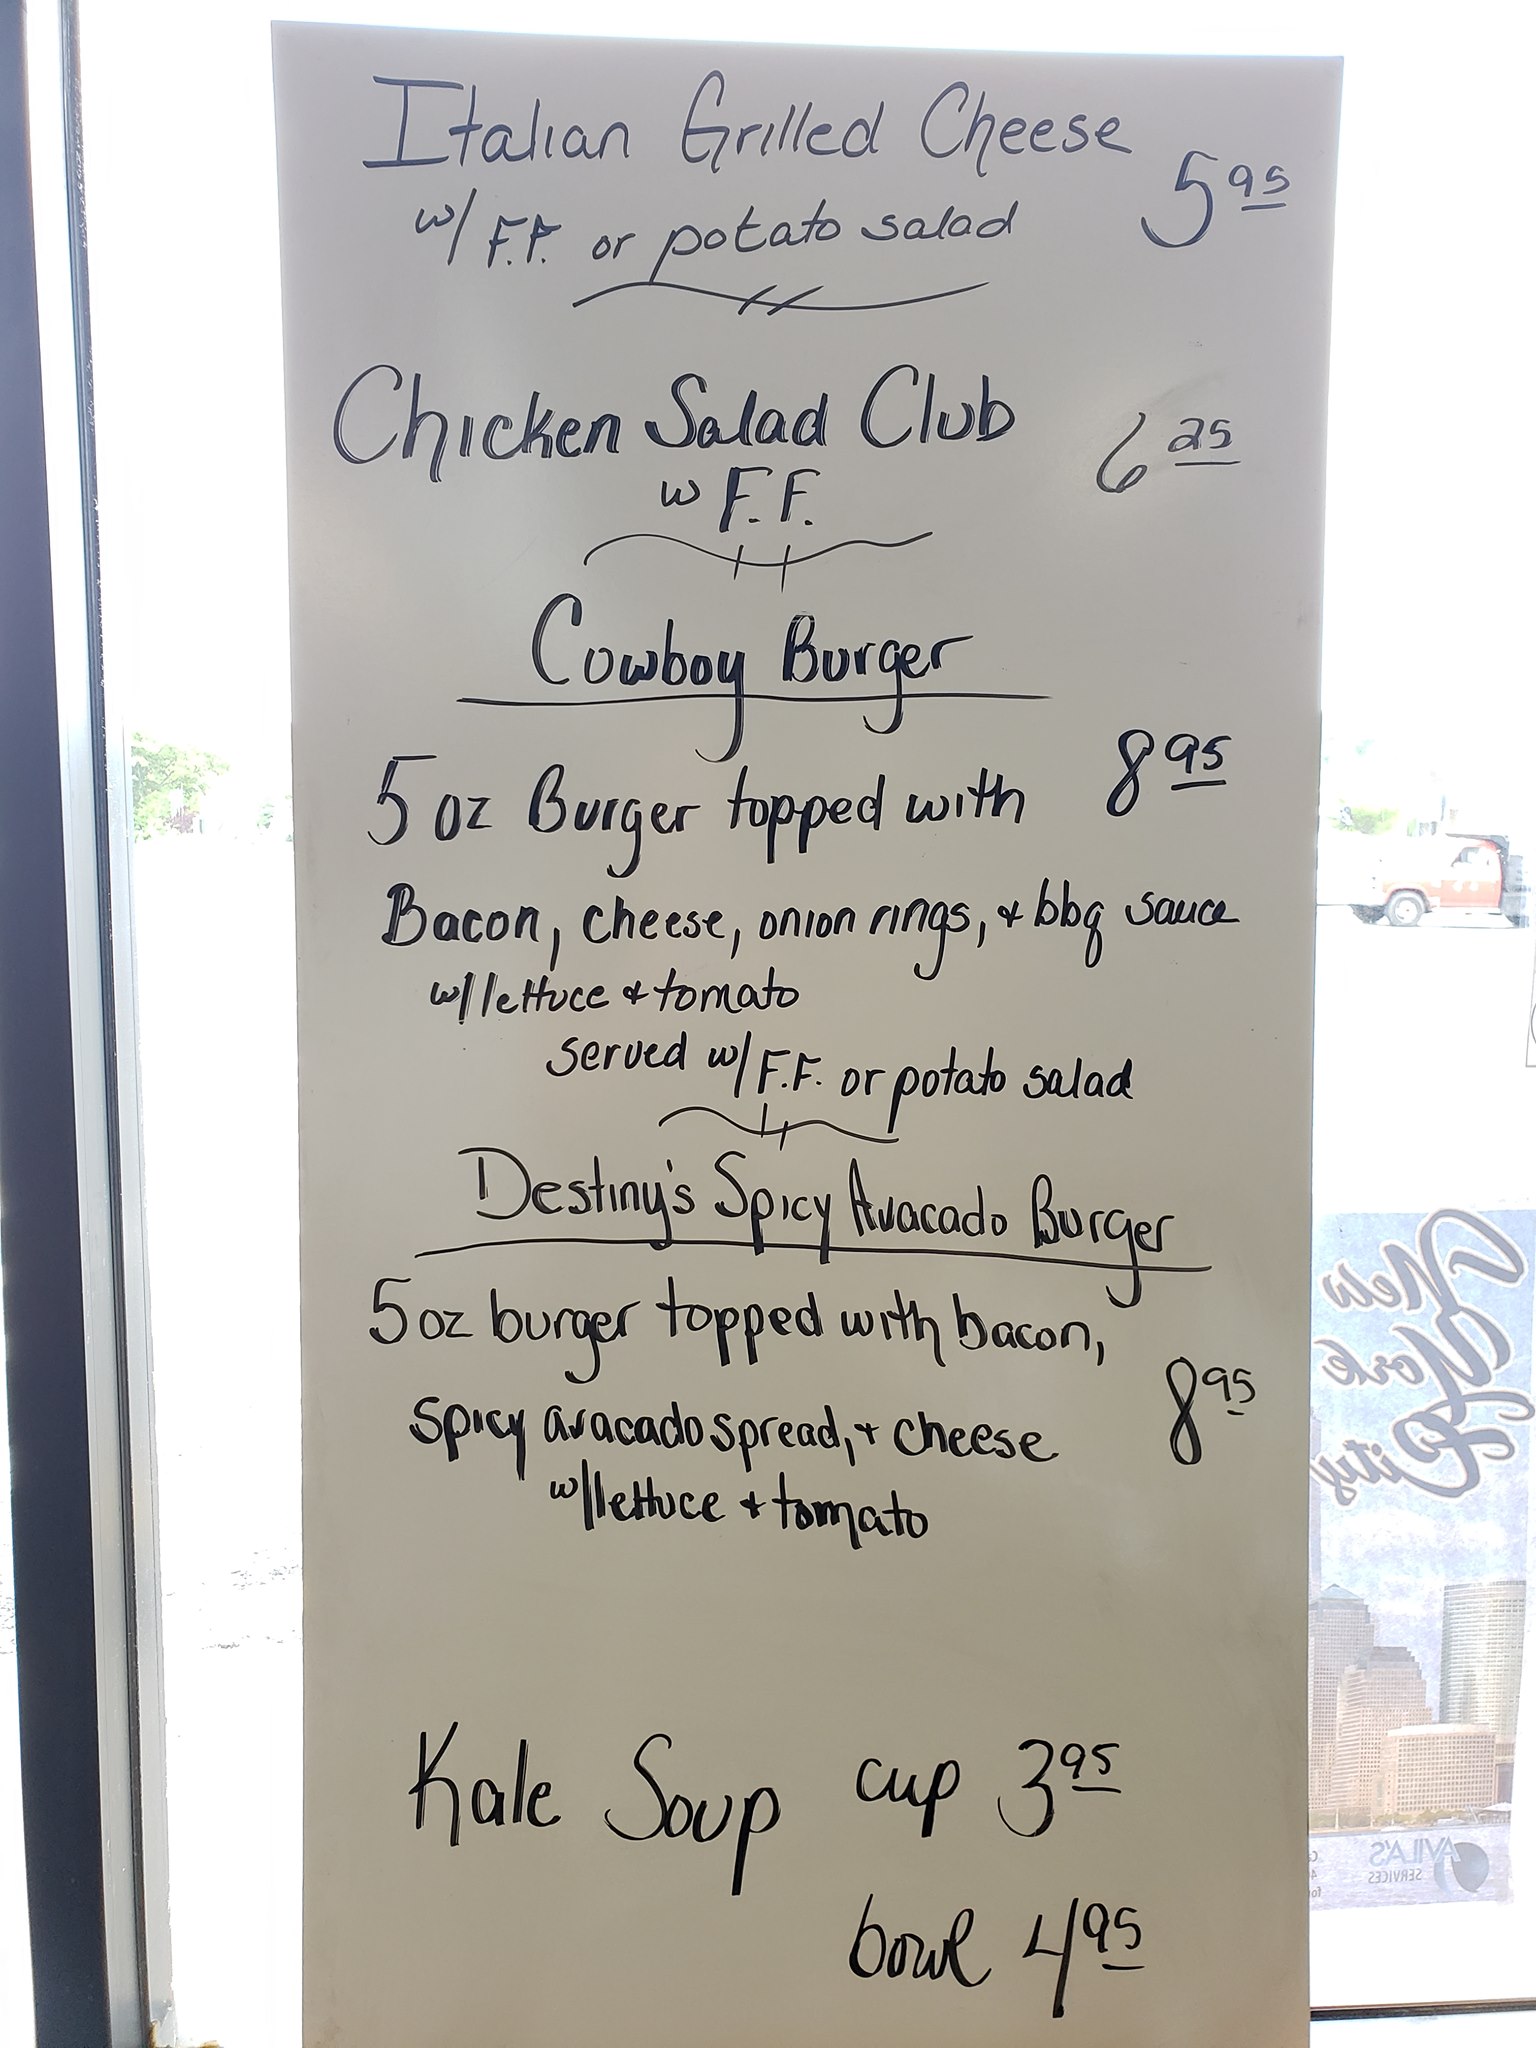 Italian Grilled Cheese 5 95
w/ F.F. or potato salad
Chicken Salad Club 6 25
w F.F.
Cowboy Burger
5 oz Burger topped with 8 95
Bacon, cheese, onion rings, & bbq sauce
w/ lettuce & tomato
served w/ F.F. or potato salad
Destiny's Spicy Avacado Burger
5 oz burger topped with bacon,
spicy avacado spread, & cheese 8 95
w/ lettuce & tomato
Kale Soup cup 3 95
bowl 4 95
New
York
City
AVILA'S
SERVICES